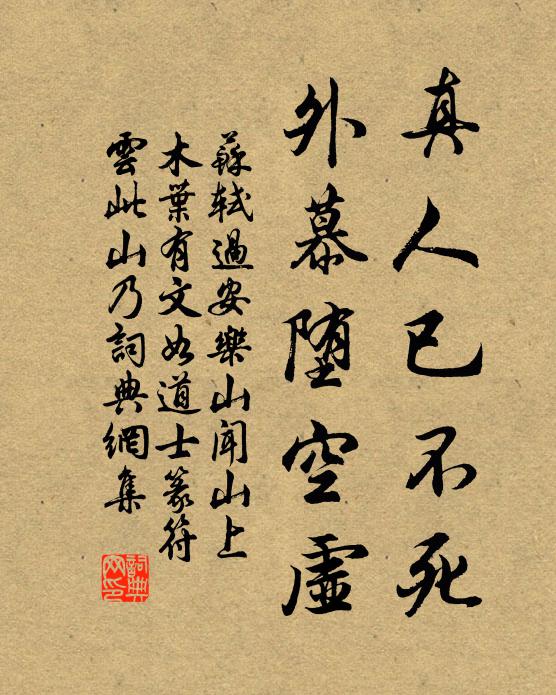 真人已不死
外慕堕空虛
蘇軾過安樂山聞山上
木葉有文如道士篆符
雲此山乃詞典網集
詞典網印